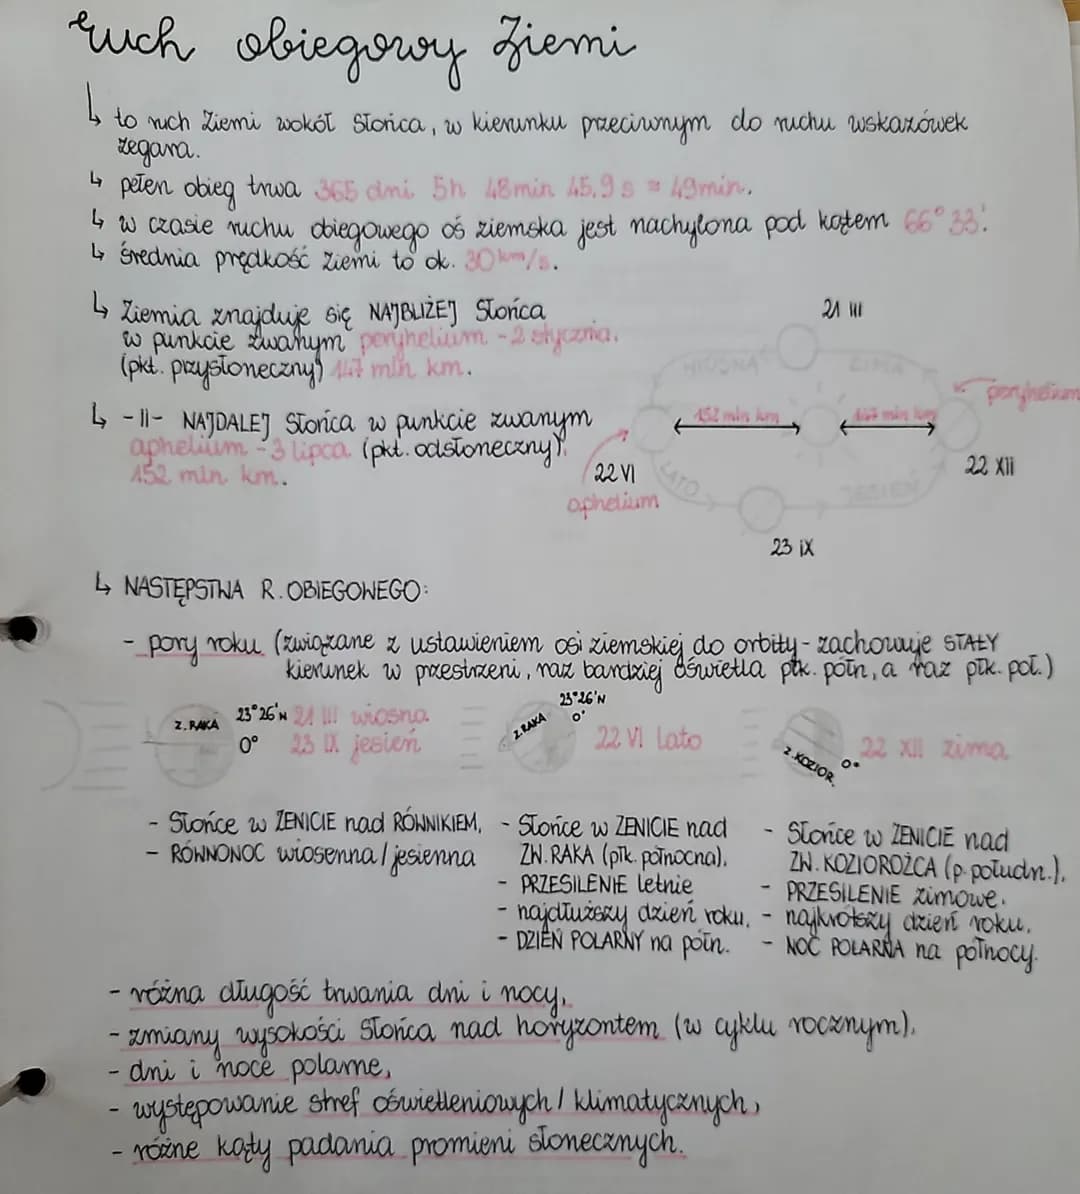 ruch obiegowy Ziemi
↳ to ruch Ziemi wokół Słońca, w kierunku przeciwnym do ruchu wskazówek
zegara.
↳ pełen obieg trwa 365 dni 5h 48min 45,9 s ≈ 49min.
↳ w czasie ruchu obiegowego oś ziemska jest nachylona pod kątem 66°33'.
↳ średnia prędkość Ziemi to ok. 30 km/s.
↳ Ziemia znajduje się NAJBLIŻEJ Słońca
w punkcie zwanym peryhelium - 2 stycznia.
(pkt. przysłoneczny) 147 mln km.
↳ -II- NAJDALEJ Słońca w punkcie zwanym
aphelium - 3 lipca (pkt. odsłoneczny).
152 mln km.
21 III
WIOSNA
ZIMA
peryhelium
152 mln km
147 mln km
22 VI
aphelium
LATO
JESIEŃ
22 XII
23 IX
↳ NASTĘPSTWA R. OBIEGOWEGO:
- pory roku (związane z ustawieniem osi ziemskiej do orbity - zachowuje STAŁY
kierunek w przestrzeni, raz bardziej oświetla płk. półn, a raz płk. poł.)
Z. RAKA 23°26'N 21 III wiosna
0° 23 IX jesień
23°26'N
Z. RAKA 0°
22 VI lato
Z. KOZIOR. 0°
22 XII zima
- Słońce w ZENICIE nad RÓWNIKIEM,
- RÓWNONOC wiosenna / jesienna
- Słońce w ZENICIE nad
ZW. RAKA (płk. północna),
- PRZESILENIE letnie
- najdłuższy dzień roku,
- DZIEŃ POLARNY na półn.
- Słońce w ZENICIE nad
ZW. KOZIOROŻCA (p. połudn.),
- PRZESILENIE zimowe.
- najkrótszy dzień roku,
- NOC POLARNA na północy.
- różna długość trwania dni i nocy,
- zmiany wysokości Słońca nad horyzontem (w cyklu rocznym),
- dni i noce polarne,
- występowanie stref oświetleniowych / klimatycznych,
- różne kąty padania promieni słonecznych.